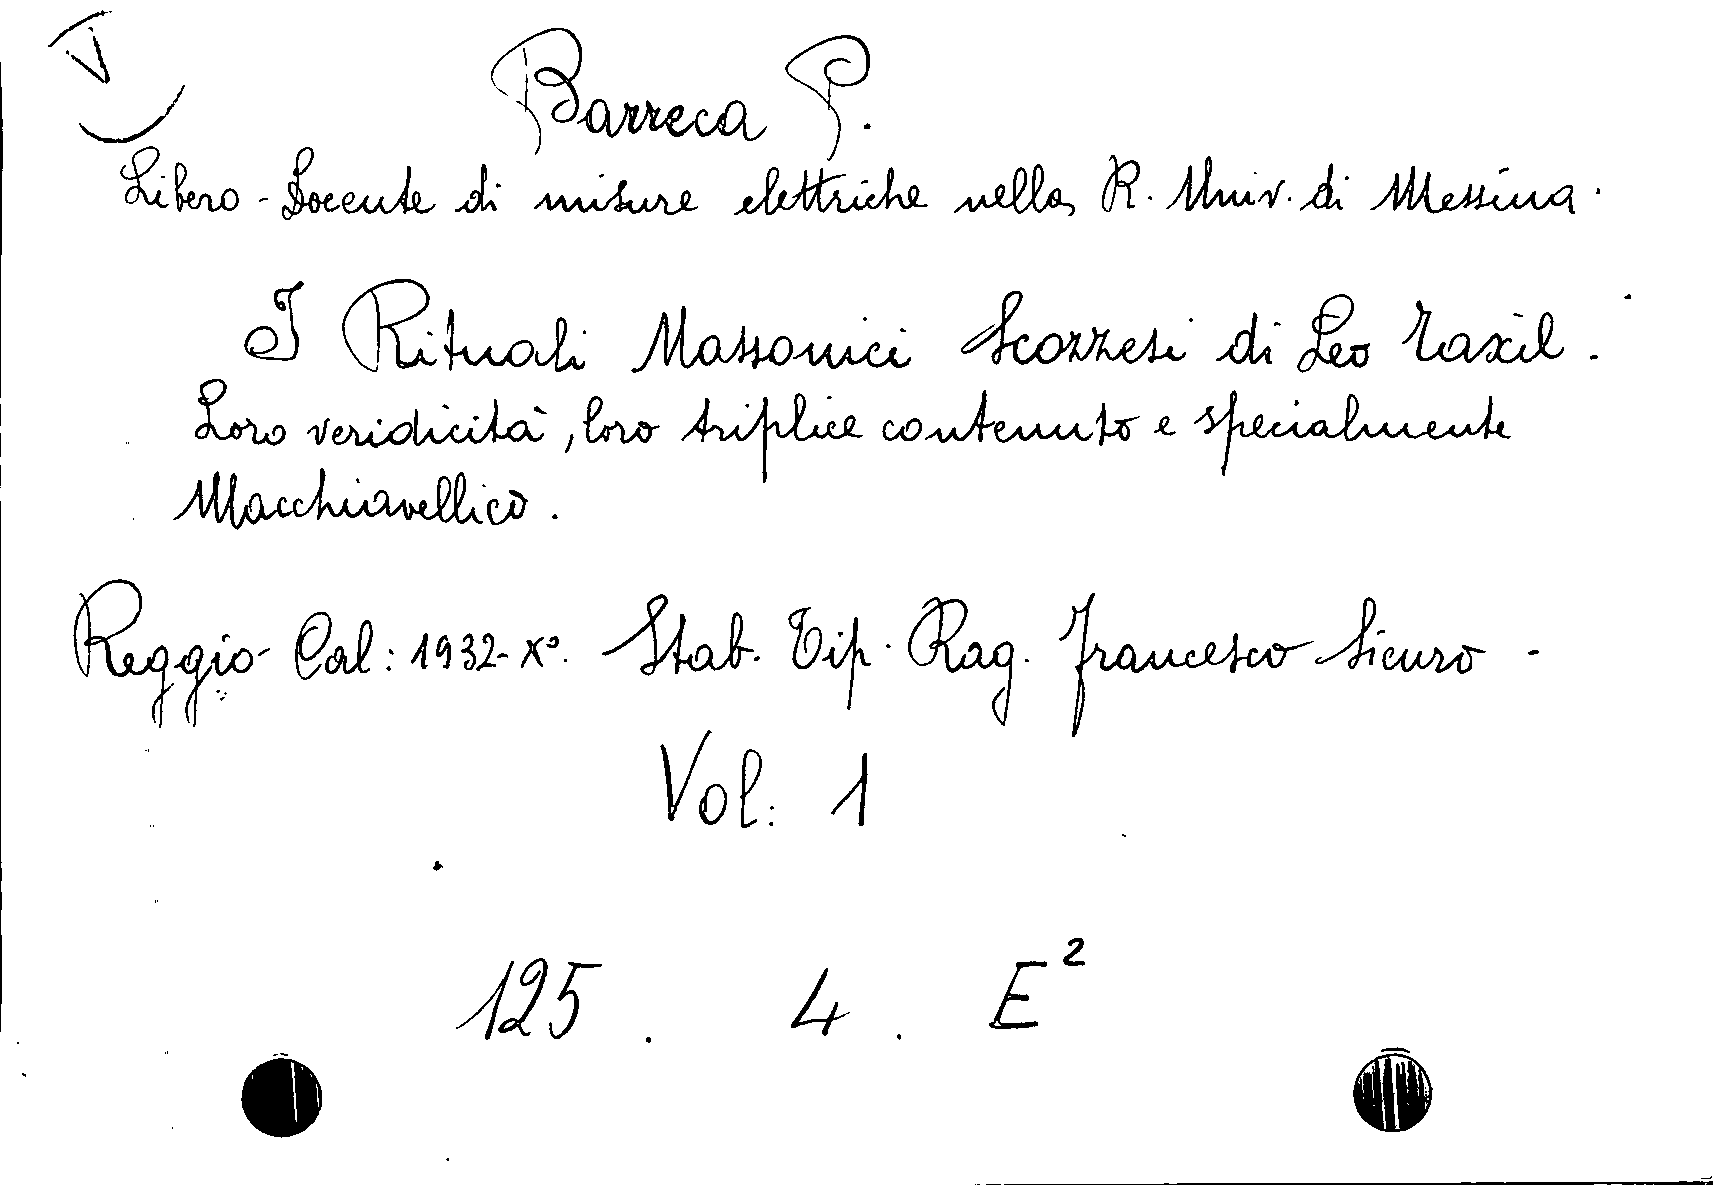 V
Barreca P.
Libero-Docente di misure elettriche nella R. Univ. di Messina.
I Rituali Massonici Scozzesi di Leo Taxil.
Loro veridicità, loro triplice contenuto e specialmente
Macchiavellico.
Reggio Cal: 1932-Xº. Stab. Tip. Rag. Francesco Sicuro -
Vol: 1
125 . 4 . E²